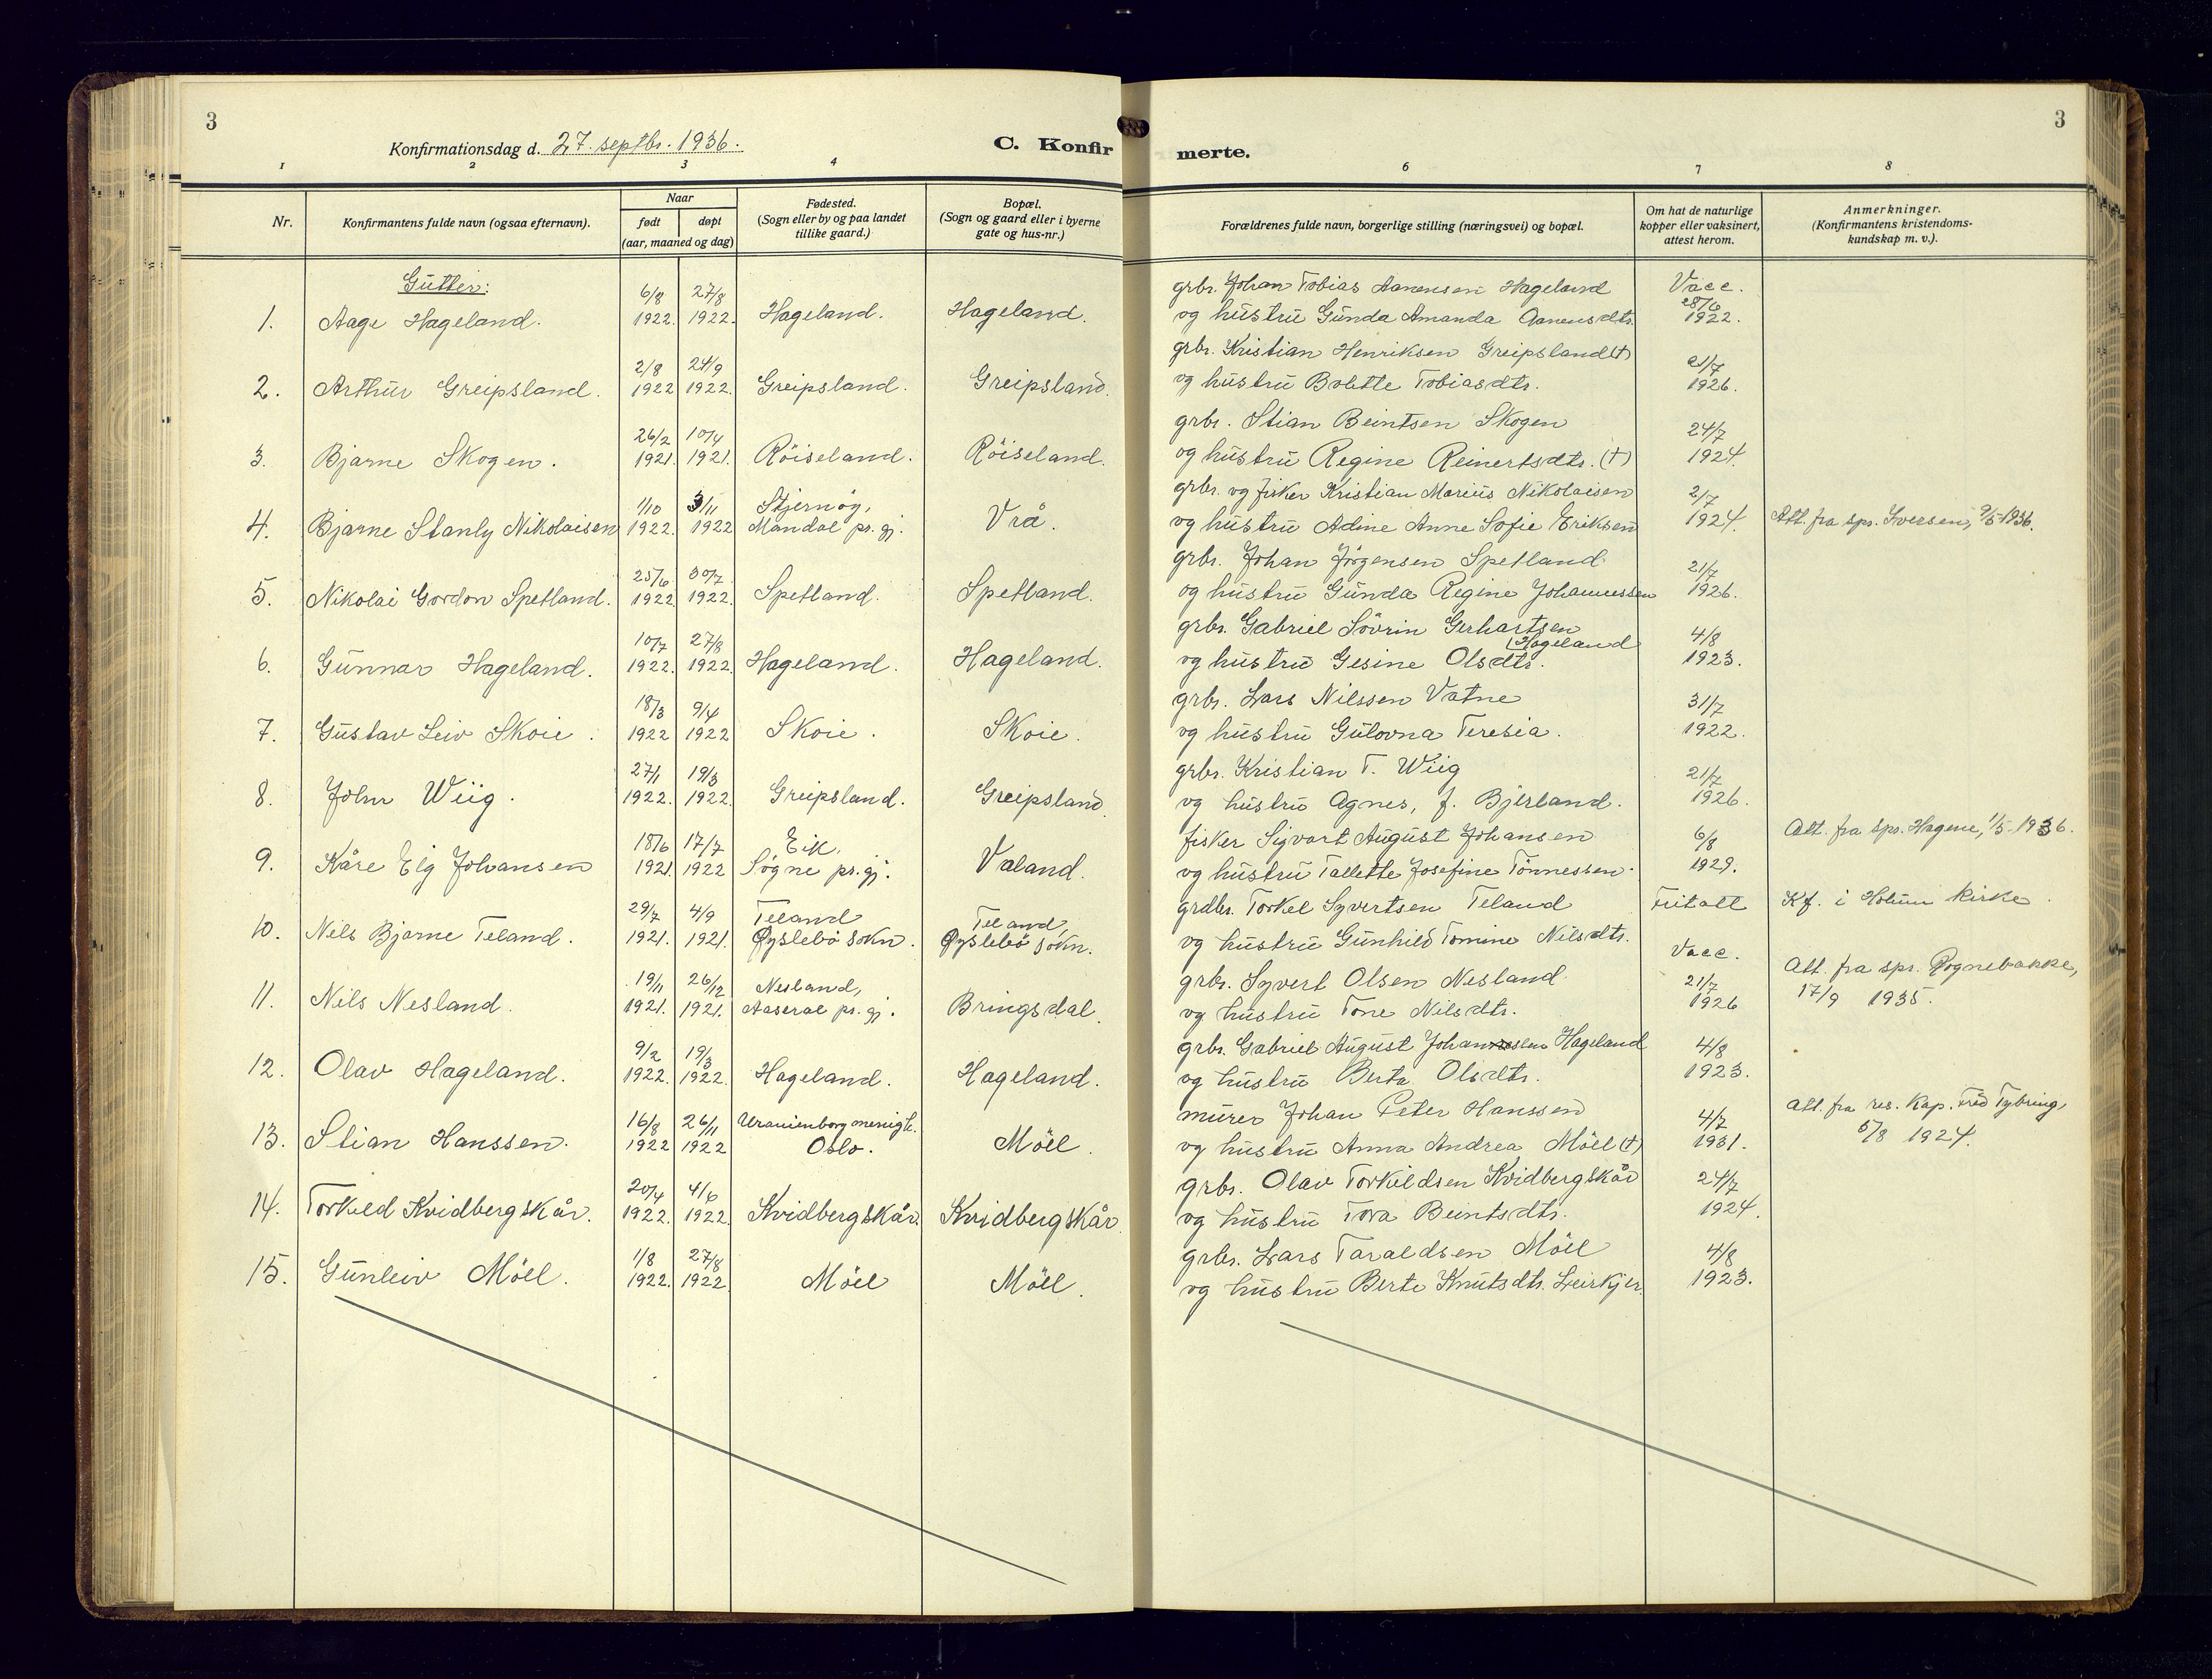 3
Konfirmationsdag d. 27. septbr. 1936.
C. Konfir
1 2 3 4
Nr.
Konfirmantens fulde navn (ogsaa efternavn).
Naar
født døpt
(aar, maaned og dag)
Fødested.
(Sogn eller by og paa landet
tillike gaard.)
Bopæl.
(Sogn og gaard eller i byerne
gate og hus-nr.)
Gutter:
6/8 27/8
1. Aage Hageland. 1922. 1922. Hageland. Hageland.
2/8 24/9
2. Arthur Greipsland. 1922 1922. Greipsland. Greipsland.
26/2 10/4
3. Bjarne Skogen. 1921. 1921. Röiseland. Röiseland.
1/10 3/11 Stjernöy,
4. Bjarne Stanly Nikolaisen 1922. 1922 Mandal pr. gj. Vrå.
25/6 30/7
5. Nikolai Gordon Spetland. 1922. 1922. Spetland. Spetland.
10/7 27/8
6. Gunnar Hageland. 1922. 1922. Hageland. Hageland.
18/3 9/4
7. Gustav Leiv Skoie. 1922 1922 Skoie. Skoie.
27/1 19/3
8. John Wiig. 1922. 1922. Greipsland. Greipsland
18/6 17/7 Eik,
9. Kåre Elg Johansen 1921. 1922 Søgne pr. gj. Valand.
29/7 4/9 Teland Teland,
10. Nils Bjarne Teland. 1921. 1921. Øyslebö sokn. Øyslebö sokn.
19/11 26/12 Nesland,
11. Nils Nesland. 1921. 1921. Aaseral pr. gj. Bringsdal.
9/2 19/3
12. Olav Hageland. 1922. 1922. Hageland. Hageland.
16/8 26/11 Uranienborg menigh.
13. Stian Hanssen. 1922 1922 Oslo. Möll.
20/4 4/6
14. Torkild Kvidbergskår. 1922. 1922. Kvidbergskår. Kvidbergskår
1/8 27/8
15. Gunleiv Möll. 1922. 1922. Möll Möll.
merte.
3
6 7 8
Forældrenes fulde navn, borgerlige stilling (næringsvei) og bopæl.
Om hat de naturlige
kopper eller vaksinert,
attest herom.
Anmerkninger.
(Konfirmantens kristendoms-
kundskap m. v.).
grbr. Johan Tobias Aanensen Hageland Vacc.
28/6
og hustru Gunda Amanda Aanensdtr. 1922.
grbr. Kristian Henriksen Greipsland (†) 21/7
og hustru Bolette Tobiasdtr. 1926.
grbr. Stian Beintsen Skogen 24/7
og hustru Regine Reinertsdtr. (†) 1924.
grbr. og fisker Kristian Marius Nikolaisen 2/7
og hustru Adine Anne Sofie Eriksen 1924. Att. fra spr. Iversen, 9/5-1936.
grbr. Johan Jörgensen Spetland 21/7
og hustru Gunda Regine Johannessen 1926.
grbr. Gabriel Sövrin Gerhartsen
(Hageland 4/8
og hustru Gesine Olsdtr. 1923.
grbr. Lars Nilssen Vatne 31/7
og hustru Gulovna Teresia. 1922.
grbr. Kristian T. Wiig 21/7
og hustru Agnes, f. Bjerland. 1926.
fisker Sigvart August Johansen 6/8 Att. fra spr. Hagene, 1/5-1936.
og hustru Tallette Josefine Tönnessen. 1929.
grdbr. Torkel Syvertsen Teland Fritatt Kf. i Holum kirke.
og hustru Gunhild Tomine Nilsdtr.
Vacc.
grbr. Syvert Olsen Nesland 21/7 Att. fra spr. Rognebakke,
og hustru Tone Nilsdtr. 1926 17/9 1935.
grbr. Gabriel August Johannesen Hageland 4/8
og hustru Berta Olsdtr. 1923.
murer Johan Peter Hanssen 4/7 Att. fra res. kap. Fred Tybring,
og hustru Anna Andrea Möll (†) 1931. 5/8 1924.
grbr. Olav Torkildsen Kvidbergskår 24/7
og hustru Tora Beintsdtr. 1924.
grbr. Lars Taraldsen Möll 4/8
og hustru Berte Knutsdtr. Leirkjer. 1923.